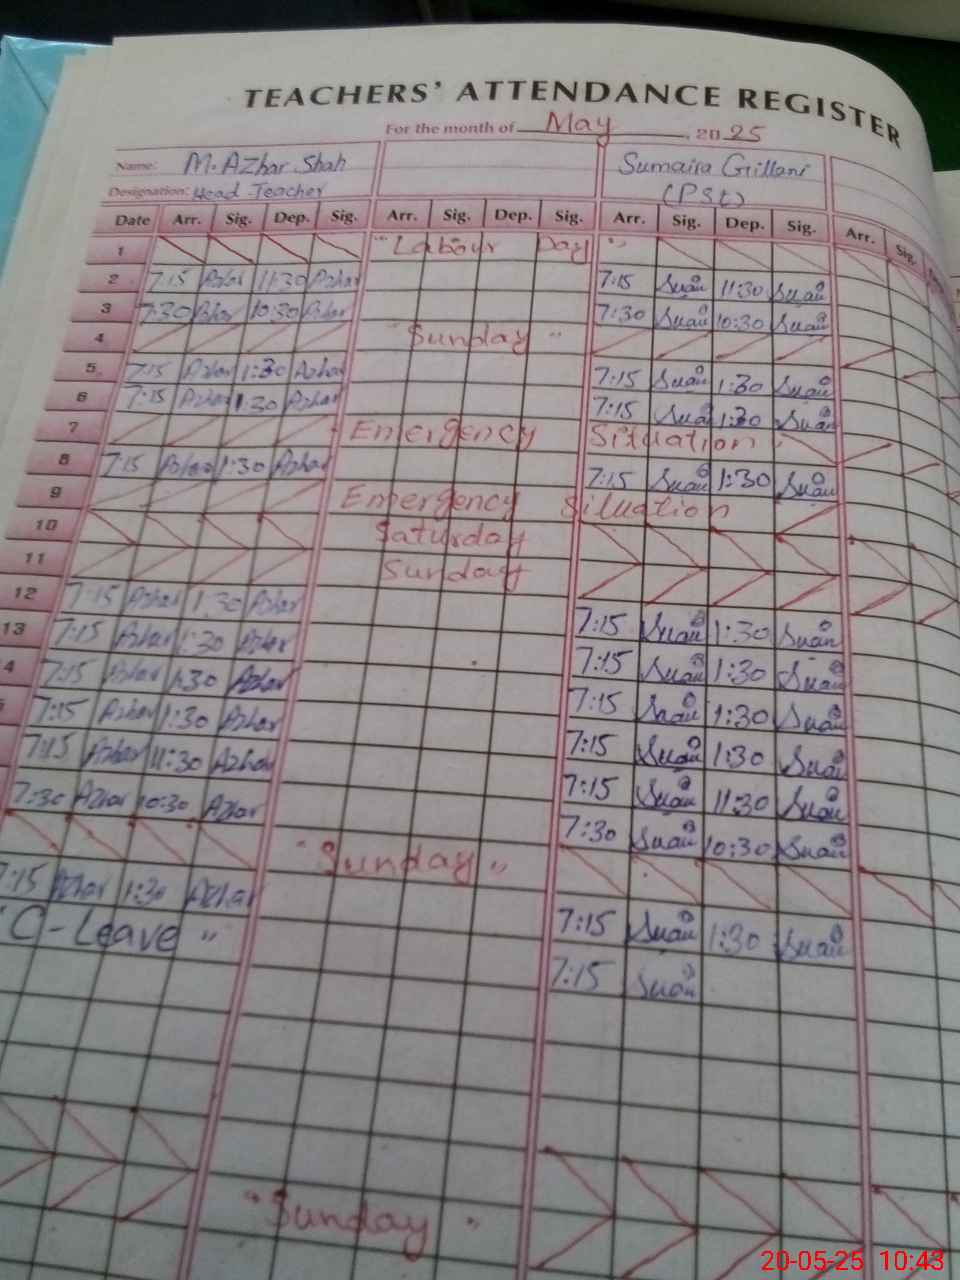 TEACHERS' ATTENDANCE REGISTER
For the month of May, 2025
Name: M. Azhar Shah Sumaira Gillani
Designation: Head Teacher (PSt)
Date Arr. Sig. Dep. Sig. Arr. Sig. Dep. Sig. Arr. Sig. Dep. Sig. Arr. Sig.
1 "Labour Day"
2 7:15 Azhar 11:30 Azhar 7:15 11:30
3 7:30 Azhar 10:30 Azhar 7:30 10:30
4 "Sunday"
5 7:15 Azhar 1:30 Azhar 7:15 1:30
6 7:15 Azhar 1:30 Azhar 7:15 1:30
7 Emergency Situation
8 7:15 Azhar 1:30 Azhar 7:15 1:30
9 Emergency Situation
10 Saturday
11 Sunday
12 7:15 Azhar 1:30 Azhar 7:15 1:30
13 7:15 Azhar 1:30 Azhar 7:15 1:30
4 7:15 Azhar 1:30 Azhar 7:15 1:30
7:15 Azhar 1:30 Azhar 7:15 1:30
7:15 Azhar 11:30 Azhar 7:15 11:30
7:30 Azhar 10:30 Azhar 7:30 10:30
"Sunday"
7:15 Azhar 1:30 Azhar 7:15 1:30
"C-Leave" 7:15
"Sunday"
20-05-25 10:43